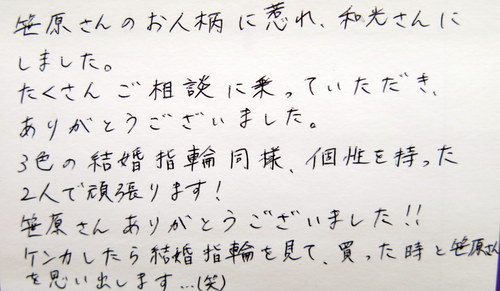 笹原さんのお人柄に惹れ、和光さんに
しました。
たくさんご相談に乗っていただき、
ありがとうございました。
3色の結婚指輪同様、個性を持った
2人で頑張ります!
笹原さんありがとうございました!!
ケンカしたら結婚指輪を見て、買った時と笹原さん
を思い出します…(笑)